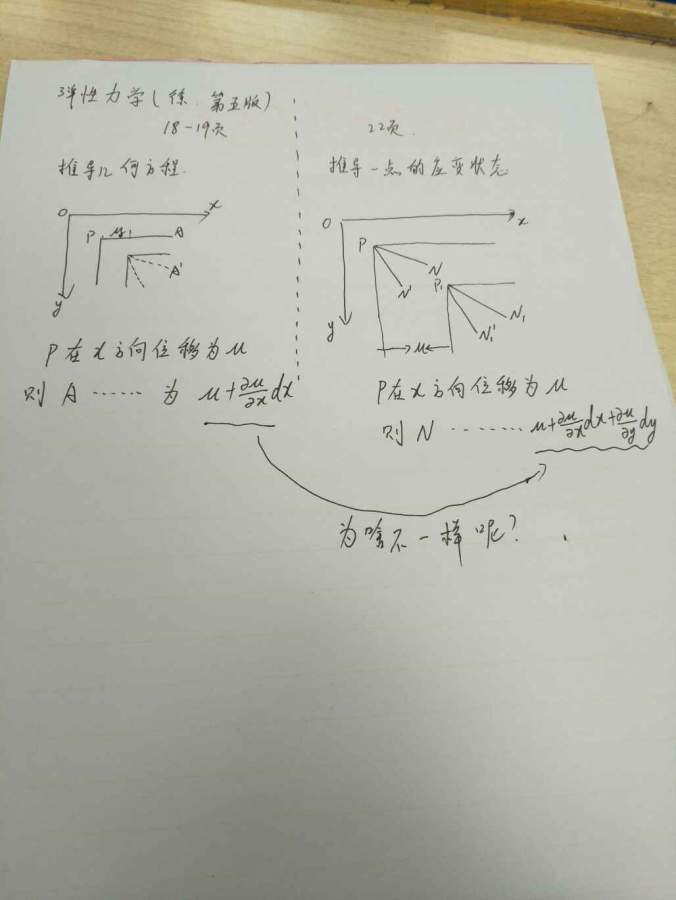 弹性力学(徐. 第五版)
18-19页
推导几何方程.
O x
P u A
A'
y
P在x方向位移为u
则 A …… 为 u+∂u/∂x dx
22页.
推导一点的应变状态
O x
P
N
N' P₁
N₁
y N₁'
u
P在x方向位移为u
则 N ……… u+∂u/∂x dx+∂u/∂y dy
为啥不一样呢?